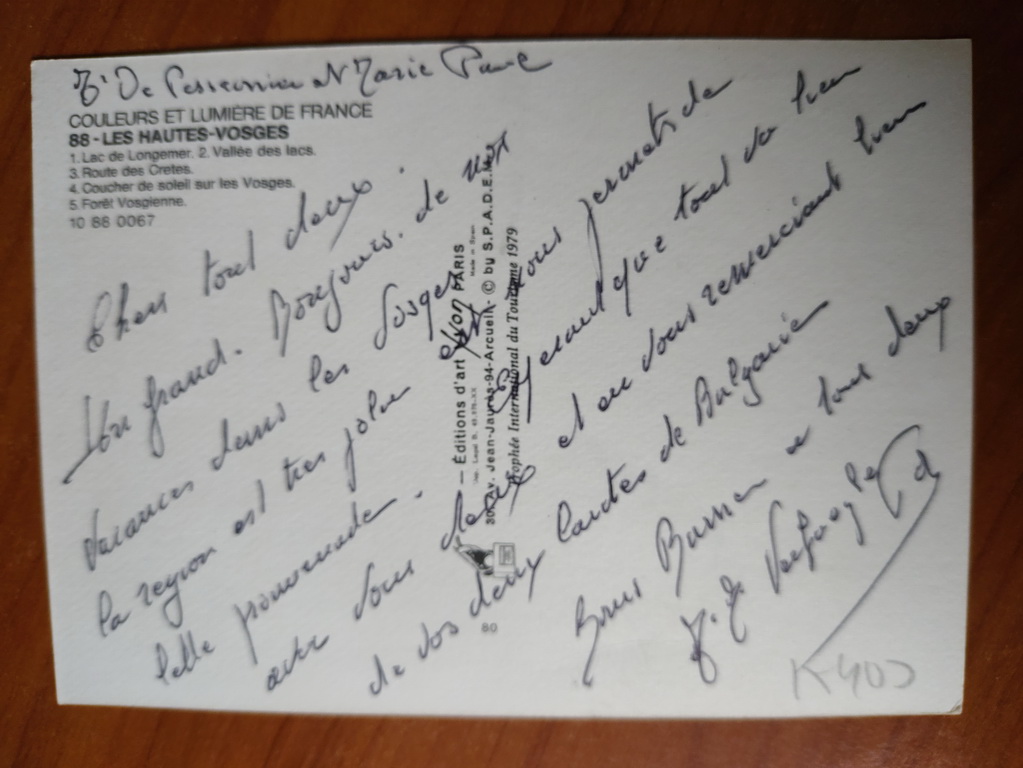 De Marie
COULEURS ET LUMIÈRE DE FRANCE
88 - LES HAUTES-VOSGES
1. Lac de Longemer. 2. Vallée des lacs.
3. Route des Cretes.
4. Coucher de soleil sur les Vosges.
5. Forêt Vosgienne.
10 88 0067
Chers tout deux.
Bonjours. de nos
vacances dans les Vosges
la region est tres jolie et nous permets de
belle promenade. Esperant que tout va bien
avec vous deux et en vous remerciant bien
de vos deux Cartes de Bulgarie
Bons Baisers a tous deux
— Éditions d'art yvon PARIS
Made in Spain
30, Av. Jean-Jaurès-94-Arcueil - © by S.P.A.D.E.M.
Trophée International du Tourisme 1979
80
K400